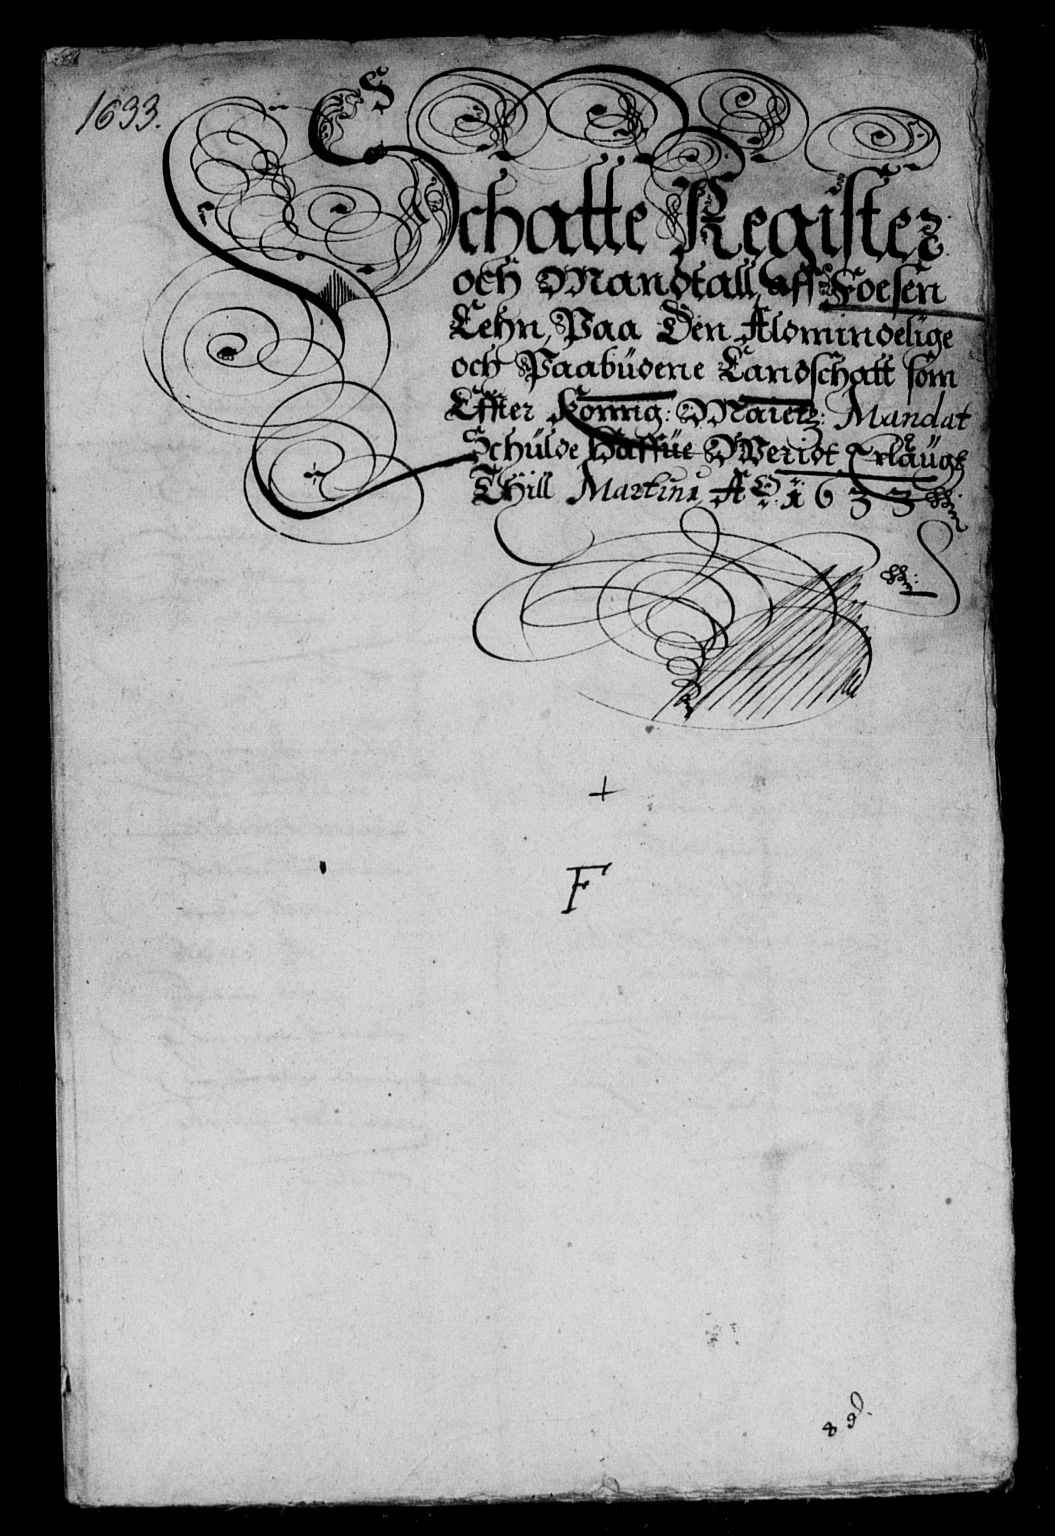 1633.
Schatte Register
och Mandtall aff Foesen
Lehn, Paa Den Almindelige
och Paabüdene Landschatt som
Effter Konnig: Maietz: Mandat
Schülde Haffüe Weridt Erlaugt
Thill Martini Ao: 1633
+
F